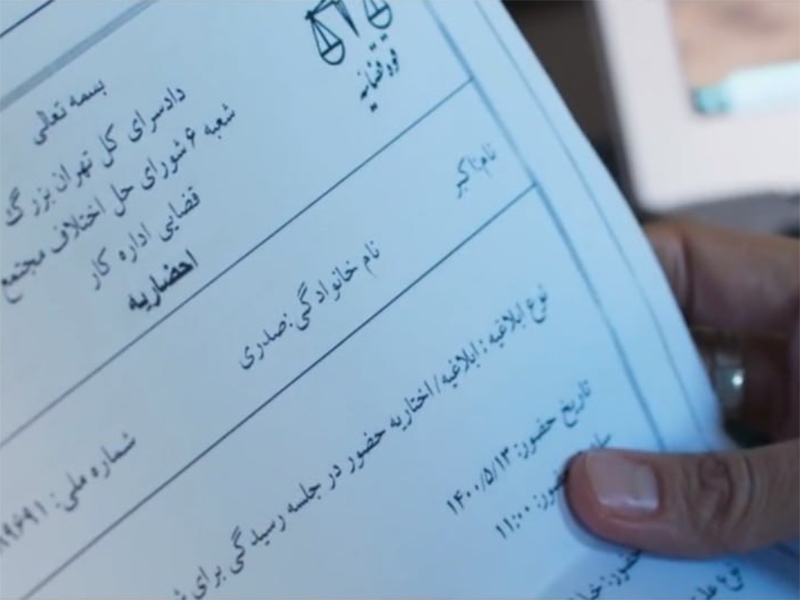 قوه قضائیه
بسمه تعالی
دادسرای کل تهران بزرگ
شعبه ۶ شورای حل اختلاف مجتمع
قضایی اداره کار
احضاریه
نام: اکبر
نام خانوادگی: صدری
شماره ملی:
نوع ابلاغیه: ابلاغیه/اختاریه حضور در جلسه رسیدگی برای
تاریخ حضور: ۱۴۰۰/۵/۱۳
حضور: ۱۱:۰۰
حضور: